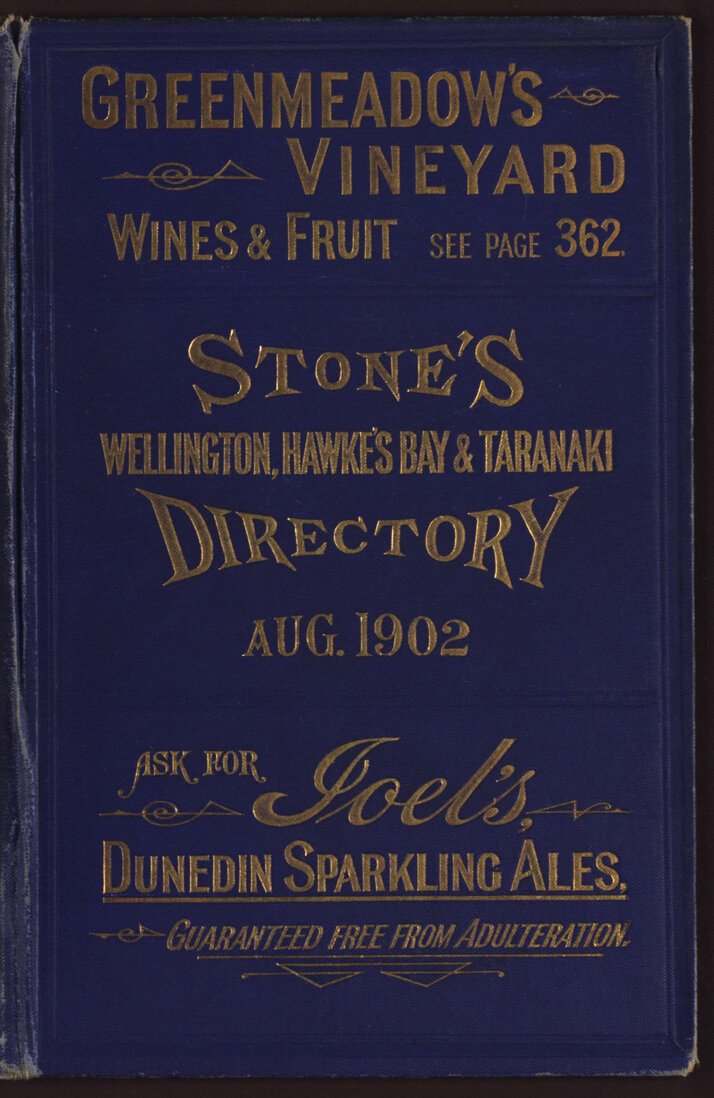 GREENMEADOW'S
VINEYARD
WINES & FRUIT SEE PAGE 362.
STONE'S
WELLINGTON, HAWKE'S BAY & TARANAKI
DIRECTORY
AUG. 1902
ASK FOR Joel's,
DUNEDIN SPARKLING ALES,
GUARANTEED FREE FROM ADULTERATION.